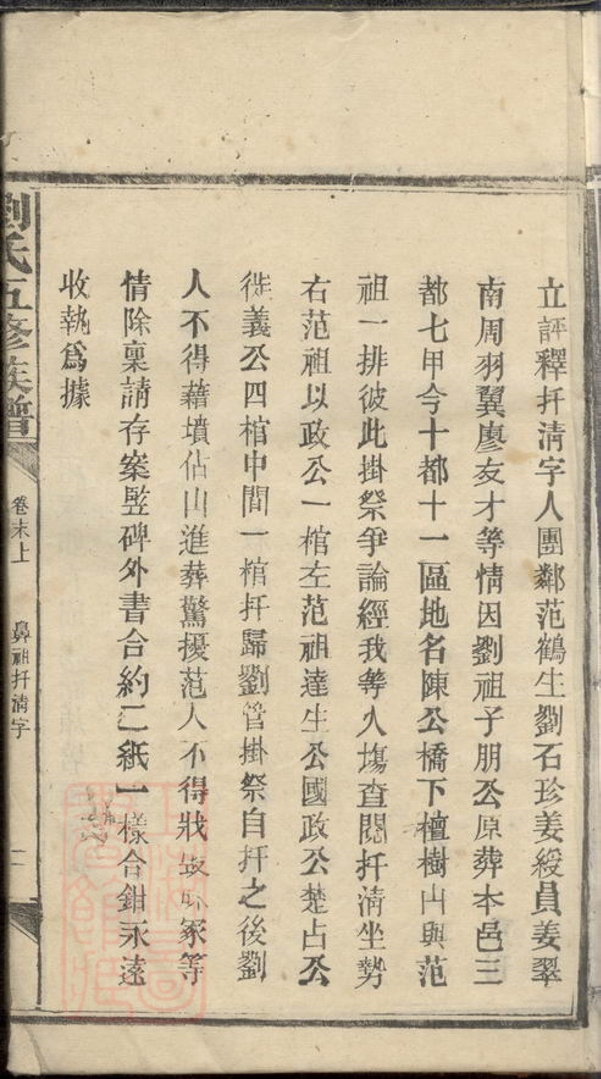 立評釋扦清字人團鄰范鶴生劉石珍姜綬員姜翠
南周羽翼廖友才等情因劉祖子朋公原葬本邑三
都七甲今十都十一區地名陳公橋下檀樹山與范
祖一排彼此掛祭爭論經我等入塲查閱扦清坐勢
右范祖以政公一棺左范祖達生公國政公楚占公
從義公四棺中間一棺扦歸劉管掛祭自扦之後劉
人不得藉墳佔山進葬驚擾范人不得戕冢等
情除稟請存案竪碑外書合約二紙一樣合鉗永遠
收執爲據
劉氏五修族譜
卷末上
鼻祖扦清字
一